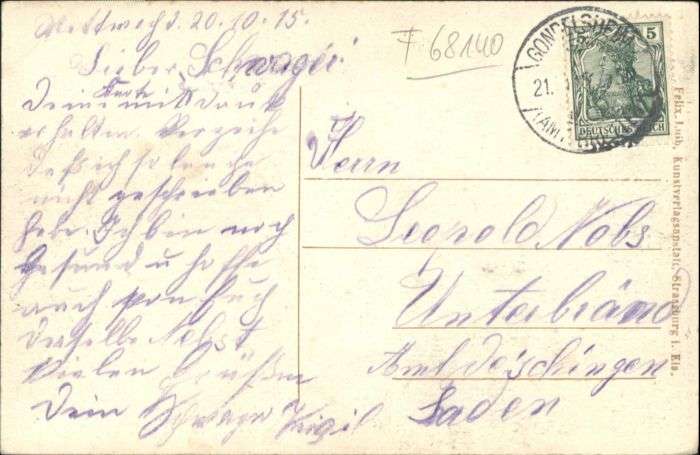 Mittwoch d. 20.10.15.
Lieber Schwager
Deine Karte mit Dank
erhalten. Verzeihe
daß ich so lange
nicht geschrieben
habe. Ich bin noch
gesund u hoffe
auch von Euch
dasselbe Nebst
vielen Grüßen
Dein Schwager
F 68140
GONDELSHEIM
21.
(AM
5
DEUTSCHES REICH
Herrn
Leopold Nobs
Unterbränd
Amt Donaueschingen
Baden
Felix Luib, Kunstverlagsanstalt, Strassburg i. Els.